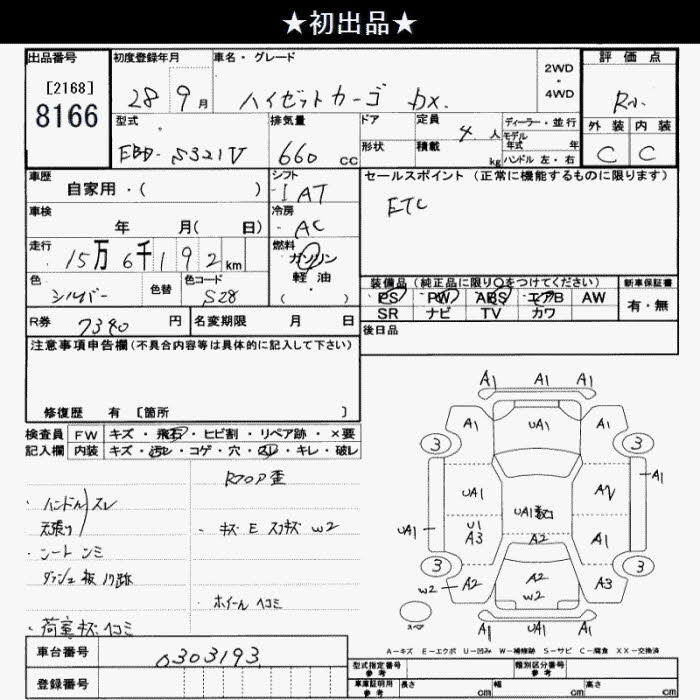 ★初出品★
出品番号 初度登録年月 車名・グレード 2WD・4WD 評価点
[2168] 8166 28 9月 ハイゼットカーゴ DX.
外装 内装
C C
型式 排気量 ドア 定員 4人 ディーラー・並行
EBD- S321V 660 cc 形状 積載 kg モデル年式 年
ハンドル 左・右
車歴 シフト セールスポイント (正常に機能するものに限ります)
自家用・( ) IAT ETC
車検 冷房
年 月( 日) AC
走行 燃料
15万6千192km ガソリン
軽油
( ・ )
色 色替 色コード
シルバー S28
装備品 (純正品に限り○をつけてください) 新車保証書
PS PW ABS エアB AW 有・無
SR ナビ TV カワ
R券 7340円 名変期限 月 日
後日品
注意事項申告欄(不具合内容等は具体的に記入して下さい)
修復歴 有 [箇所 ]
検査員 FW キズ・飛石・ヒビ割・リペア跡・×要
記入欄 内装 キズ・汚レ・コゲ・穴・スレ・キレ・破レ
・ハンドル スレ
天張り
・シート シミ
ダッシュ板
・荷室キズ、ヘコミ
・キズ E W2
・ホイール ヘコミ
A1 A1 A1
A1 UA1 A1
3 3
A1
UA1 UA1 
UA1 U1 A3 A2 A1
3 3
W2 A2 A2 W2 A3
スペア
A1 UA1 A1
A-キズ E-エクボ U-凹み W-補修跡 S-サビ C-腐食 XX-交換済
車台番号 0303193
登録番号
型式指定番号 参考 類別区分番号 参考
車庫証明用 参考 長さ cm 幅 cm 高さ cm